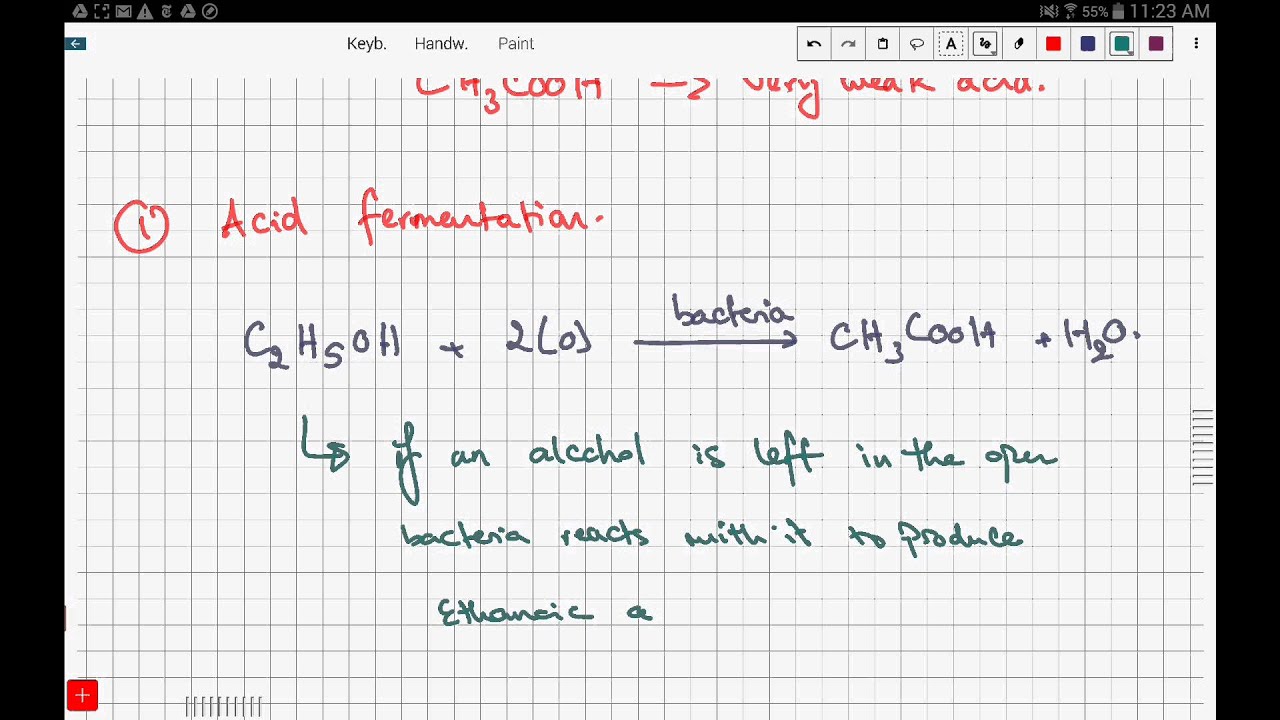 55% 11:23 AM
Keyb. Handw. Paint A
CH3COOH → very weak acid.
(i) Acid fermentation.
bacteria
C2H5OH + 2[O] → CH3COOH + H2O.
↳ if an alcohol is left in the open
bacteria reacts with it to produce
Ethanoic a